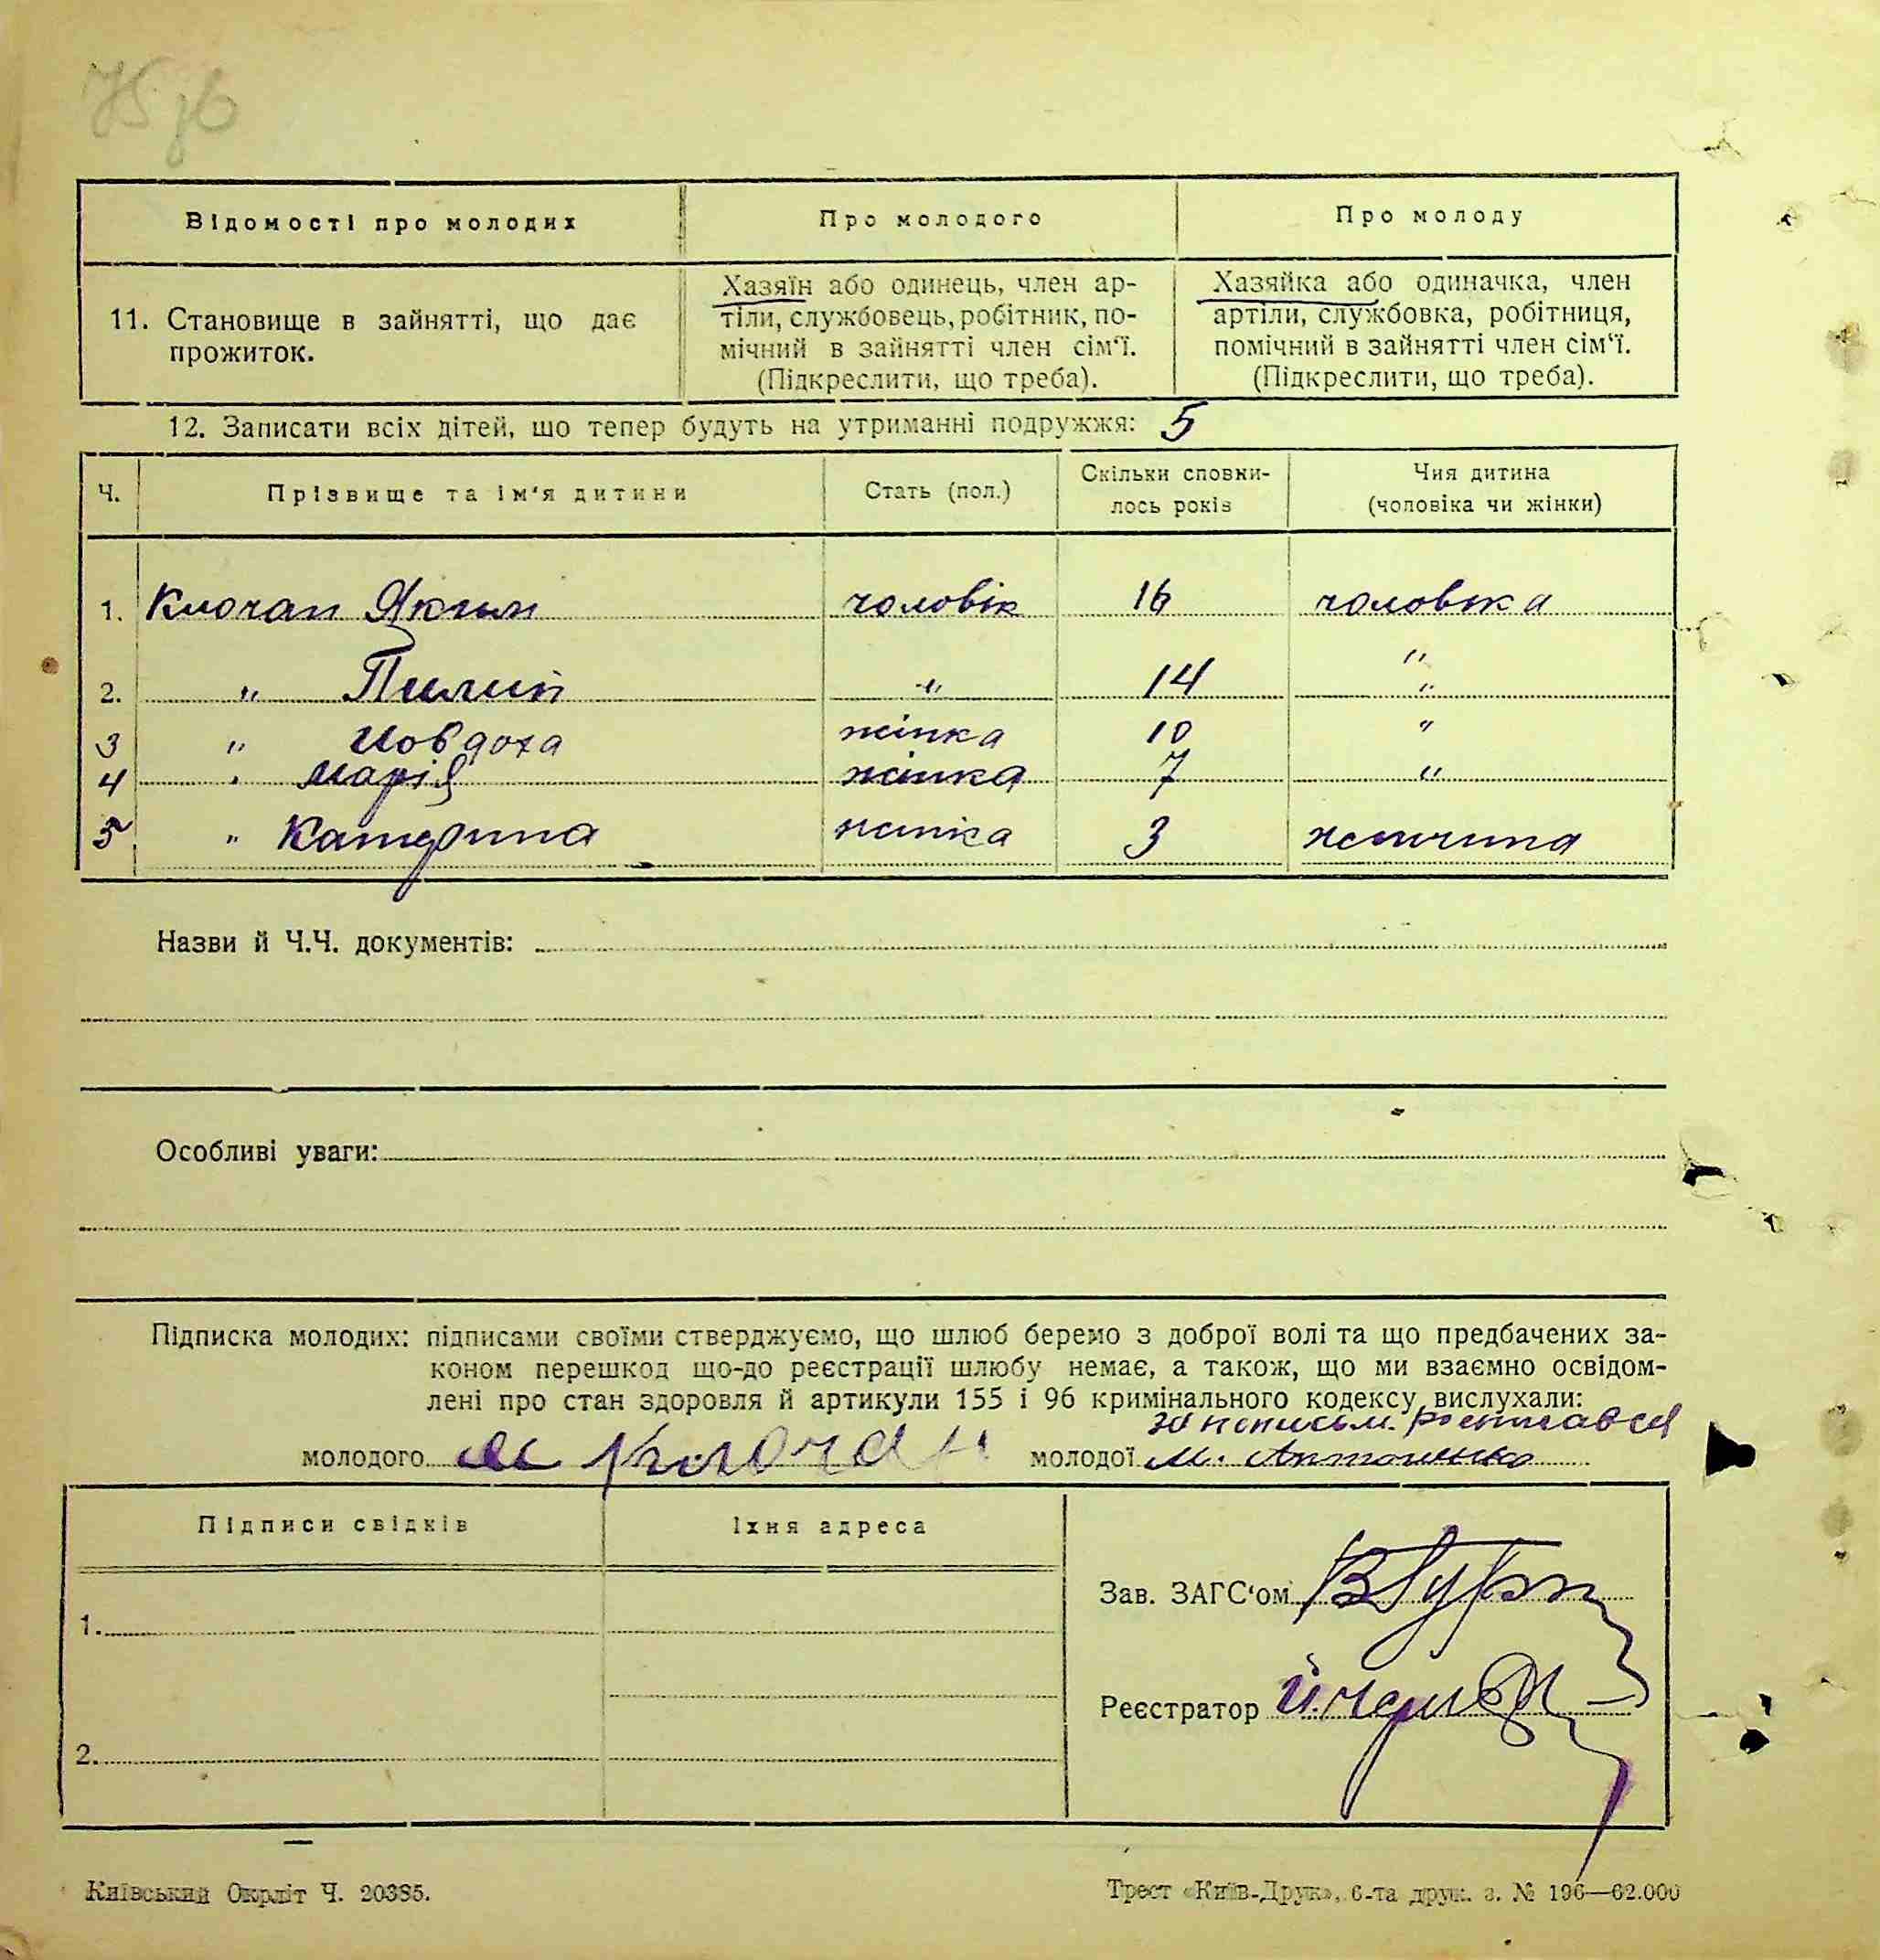 Відомості про молодих Про молодого Про молоду
11. Становище в зайнятті, що дає прожиток.
Хазяїн або одинець, член ар-
тіли, службовець, робітник, по-
мічний в зайнятті член сім'ї.
(Підкреслити, що треба).
Хазяйка або одиначка, член
артіли, службовка, робітниця,
помічний в зайнятті член сім'ї.
(Підкреслити, що треба).
12. Записати всіх дітей, що тепер будуть на утриманні подружжя: 5
Ч. Прізвище та ім'я дитини Стать (пол.) Скільки сповни-лось років Чия дитина (чоловіка чи жінки)
1. Клочан Яким чоловік 16 чоловіка
2. " Пилип " 14 " "
3 " Иовдоха жінка 10 "
4 " Марія жінка 7 "
5 " Катерина жінка 3
Назви й Ч.Ч. документів:
Особливі уваги:
Підписка молодих: підписами своїми стверджуємо, що шлюб беремо з доброї волі та що предбачених за-
коном перешкод що-до реєстрації шлюбу немає, а також, що ми взаємно освідом-
лені про стан здоровля й артикули 155 і 96 кримінального кодексу вислухали:
за неписьм. росписався
молодого молодої М. Антоненко
Підписи свідків Їхня адреса
Зав. ЗАГС'ом
1.
Реєстратор
2.
Київський Окрліт Ч. 20385.
Трест «Київ-Друк», 6-та друк. з. № 196—62.000